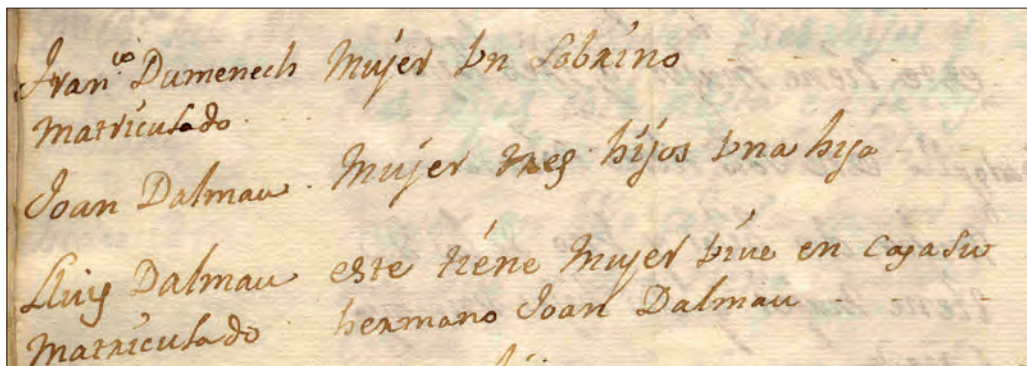 Fran.co Dumenech Mujer vn sobrino
Matriculado
Joan Dalmau. Mujer tres hijos vna hija
Lluis Dalmau este tiene Mujer viue en casa su
Matriculado hermano Joan Dalmau